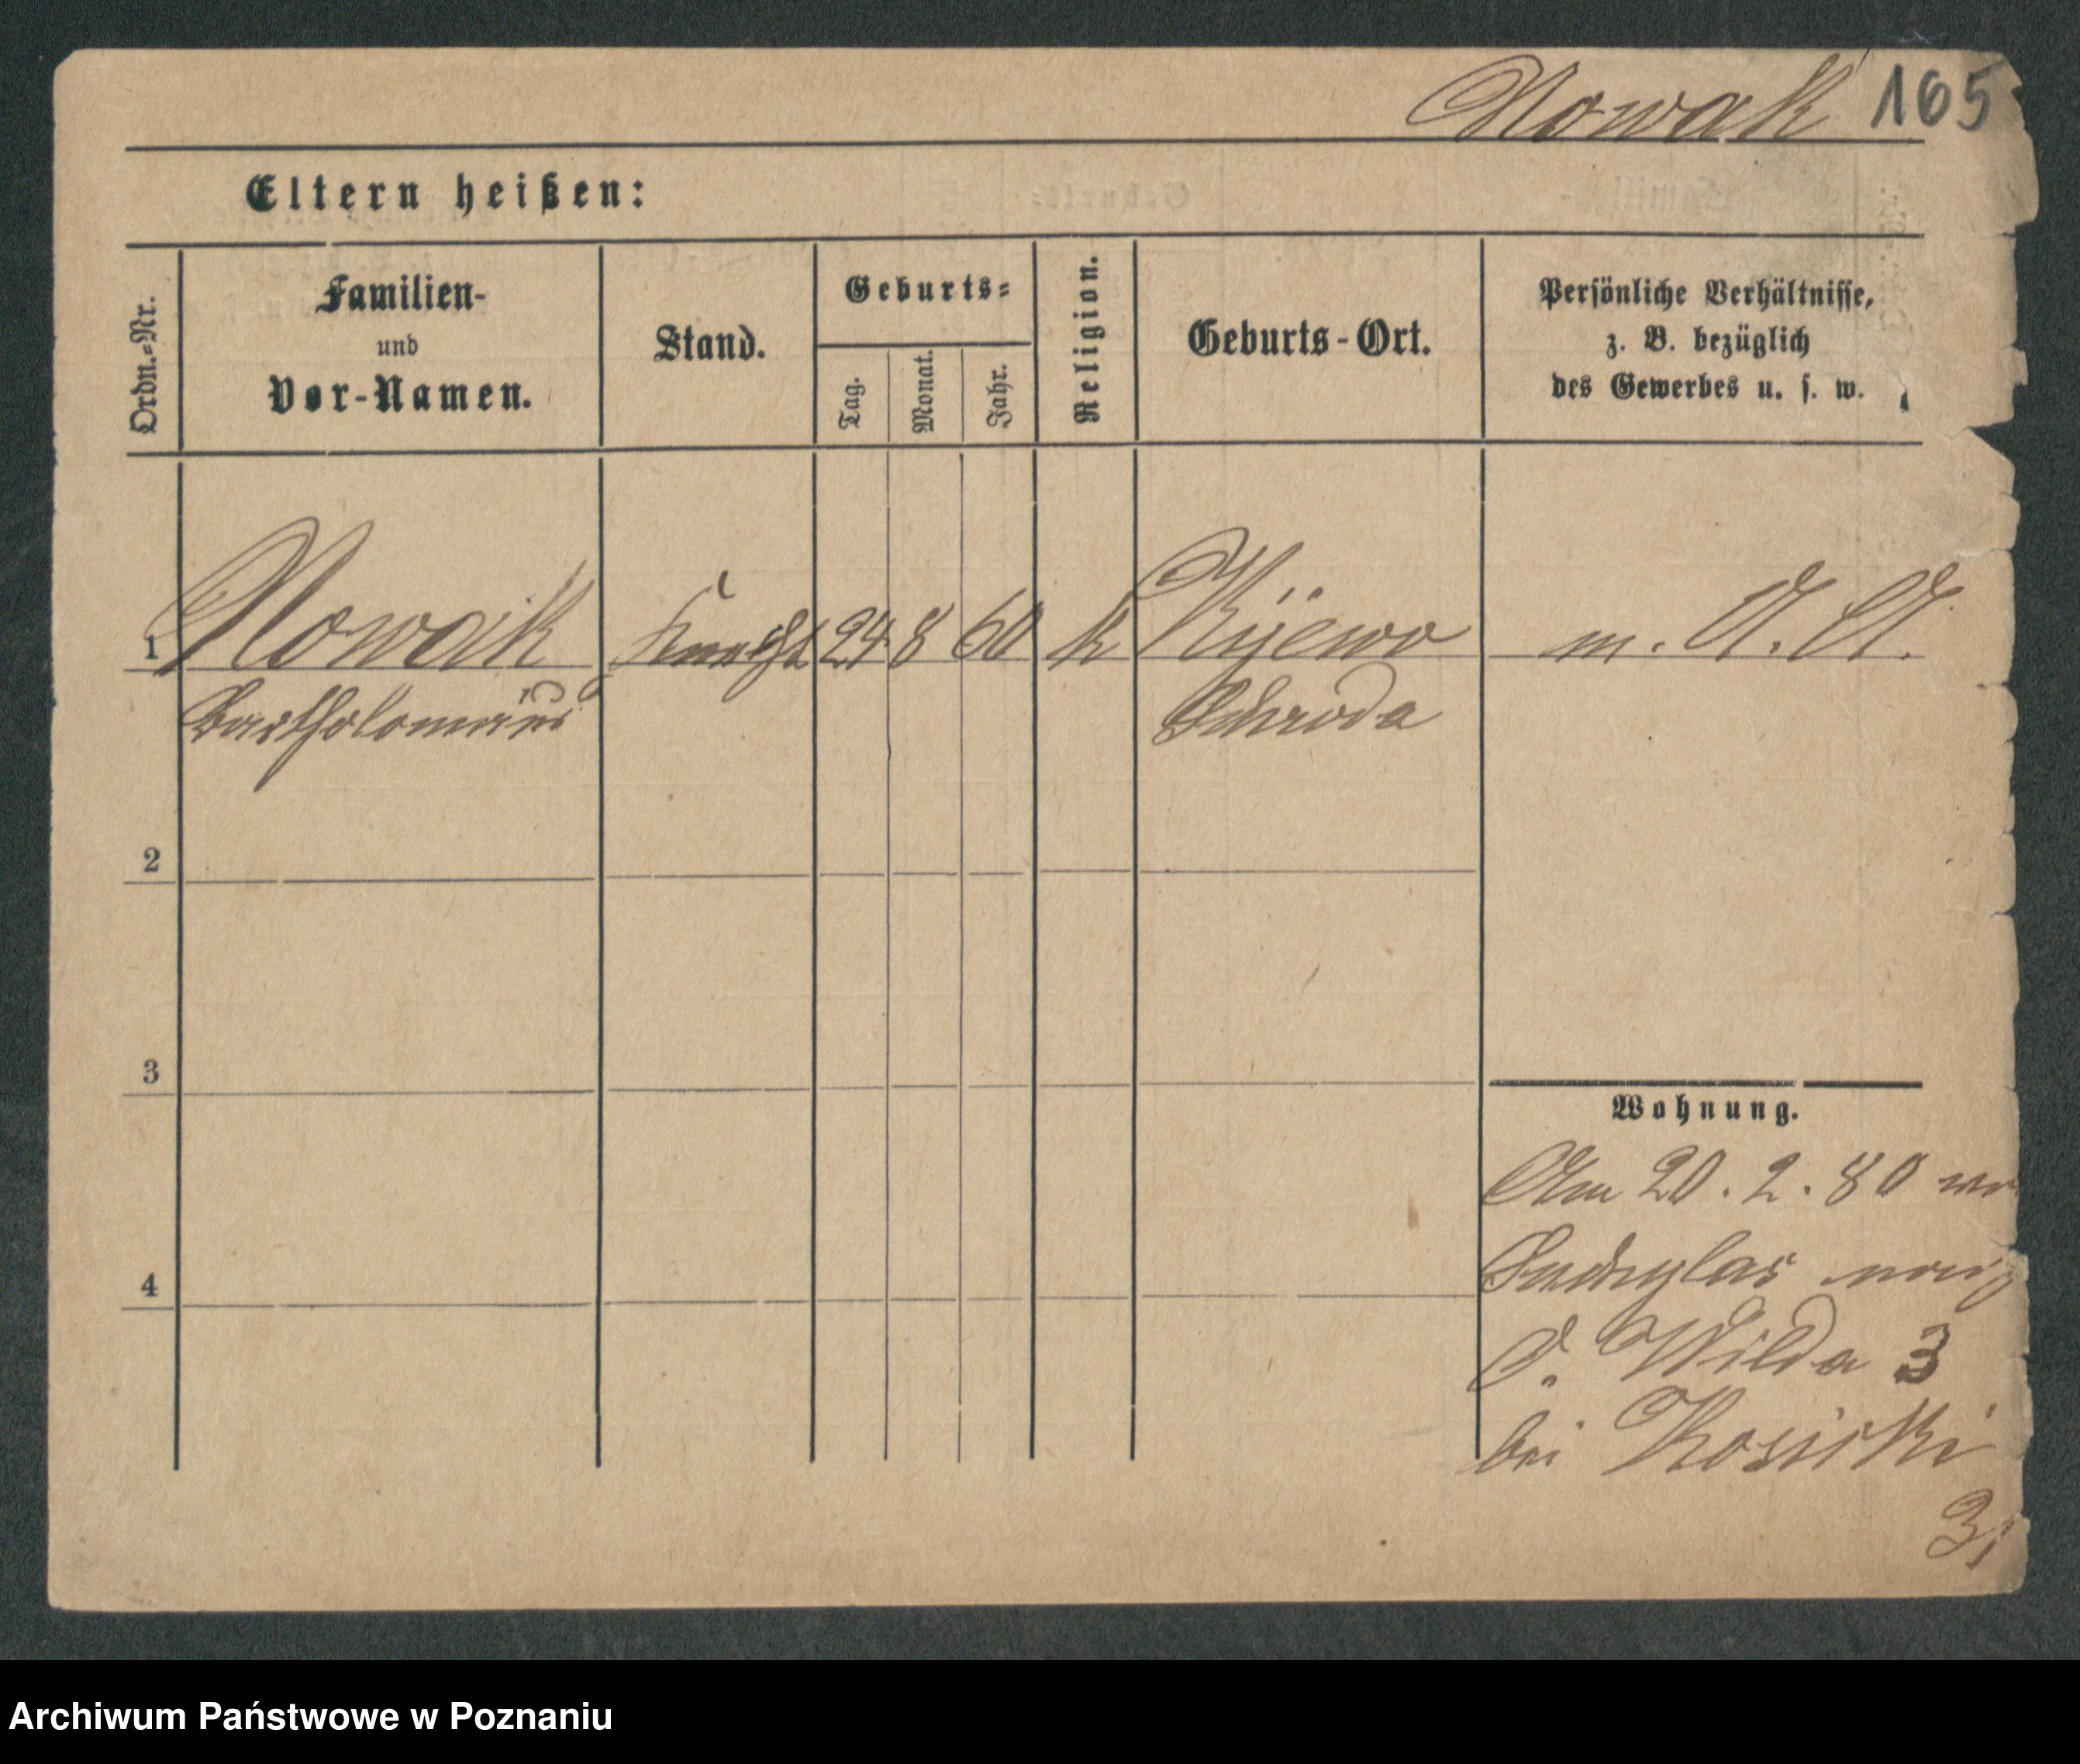 Nowak 165
Eltern heißen:
Ordn.-Nr.
Familien-
und
Vor-Namen.
Stand.
Geburts-
Tag.
Monat.
Jahr.
Religion.
Geburts-Ort.
Persönliche Verhältnisse,
z. B. bezüglich
des Gewerbes u. s. w.
1 Nowak Knecht 24 8 60 k Kijewo m. A. A.
Bartholomäus Schroda
2
3
4
Wohnung.
Am 20. 2. 80
O. Wilda 3
bei Kosicki
Archiwum Państwowe w Poznaniu